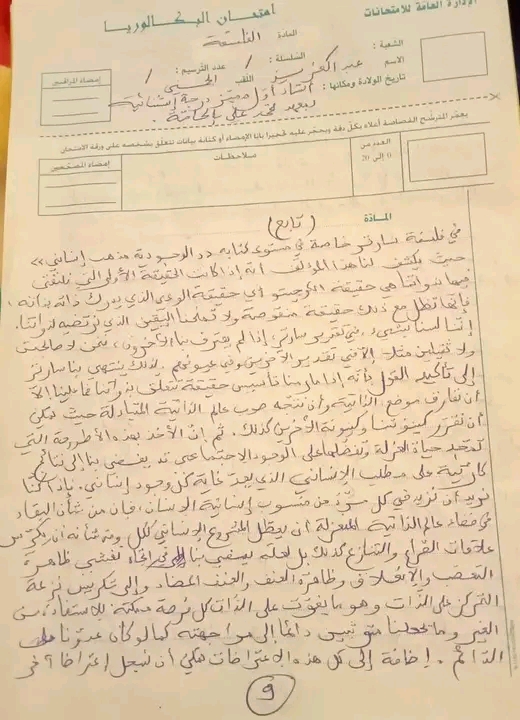 الإدارة العامة للامتحانات
امتحان البكالوريا
المادة: الفلسفة
الشعبة :
السلسلة : / عدد الترسيم : /
الاسم عبد الكريم اللقب
تاريخ الولادة ومكانها : أستاذ أول مميز درجة إستثنائية
إمضاء المراقبين
يعمّر المترشّح القصاصة أعلاه بكلّ دقة ويحجّر عليه تحجيرا باتا الإمضاء أو كتابة بيانات تتعلّق بشخصه على ورقة الامتحان
العدد من
0 إلى 20
ملاحظات
إمضاء المصححين
المادة
(تابع)
في فلسفة سارتر خاصة في مستوى كتابه "الوجودية مذهب إنساني"
حيث يكشف لنا هذا المؤلف أنه إذا كانت الحقيقة الأولى التي نلتقي
فيها بذواتنا هي حقيقة الكوجيتو أي حقيقة الوعي الذي يدرك ذاته بذاته ،
فإنها تظل مع ذلك حقيقة منقوصة ولا تمنحنا اليقين الذي نرتضيه لذواتنا.
إننا لسنا بشيء ، في تقدير سارتر، إذا لم يعترف بنا الآخرون، فنحن لا
إلا في تقدير الآخرين وفي عيونهم. لذلك ينتهي بنا سارتر
إلى تأكيد القول بأنه إذا ما رمنا تأسيس حقيقة تتعلق بذواتنا فما علينا إلا
أن نفارق موضع الذاتية وأن نتجه صوب عالم الذاتية المتبادلة حيث يمكن
أن نقرر كينونتنا وكينونة الآخرين كذلك. ثم إن الأخذ بهذه الأطروحة التي
تمجد حياة العزلة وتفضلها على الوجود الاجتماعي قد يفضي بنا إلى نتائج
كارثية على مطلب الإنساني الذي يعدّ غاية كل وجود إنساني. فإذا كنا
نريد أن نزيد في كل مرّة من منسوب إنسانية الإنسان، فإن من شأن البقاء
في فضاء عالم الذاتية المنعزلة أن يعطل المشروع الإنساني ككل ومن شأنه أن يكرس
علاقات الصراع والتنازع كذلك بل لعله يمضي بنا في اتجاه تفشي ظاهرة
التعصب والإنغلاق وظاهرة العنف والعنف المضاد وإلى تكريس نزعة
التمركز على الذات وهو ما يفوّت على الذات كل فرصة ممكنة للاستفادة من
الغير وما يجعلنا دائما إلى مواجهته كما لو كان عدوّنا
الدائم. إضافة إلى كل هذه الإعتراضات يمكن أن نسجل إعتراضا آخر
9